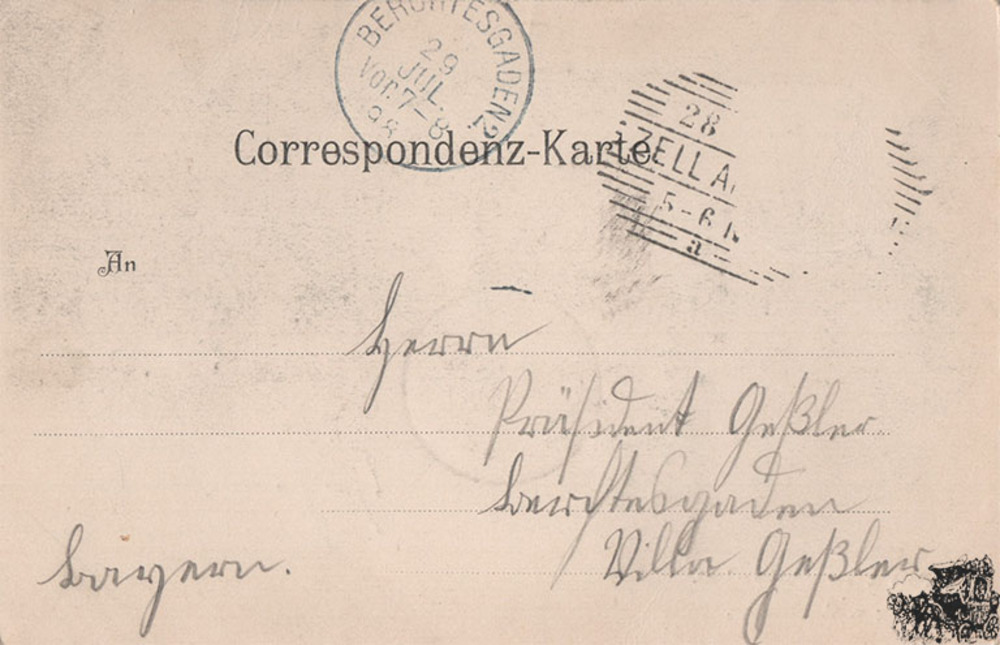 BERCHTESGADEN 2.
29
JUL.
Vor. 7-8
98
Correspondenz-Karte.
28
ZELL A
5-6 N
a
An
Herrn
Präsident Geßler
Berchtesgaden
Villa Geßler
Bayern.